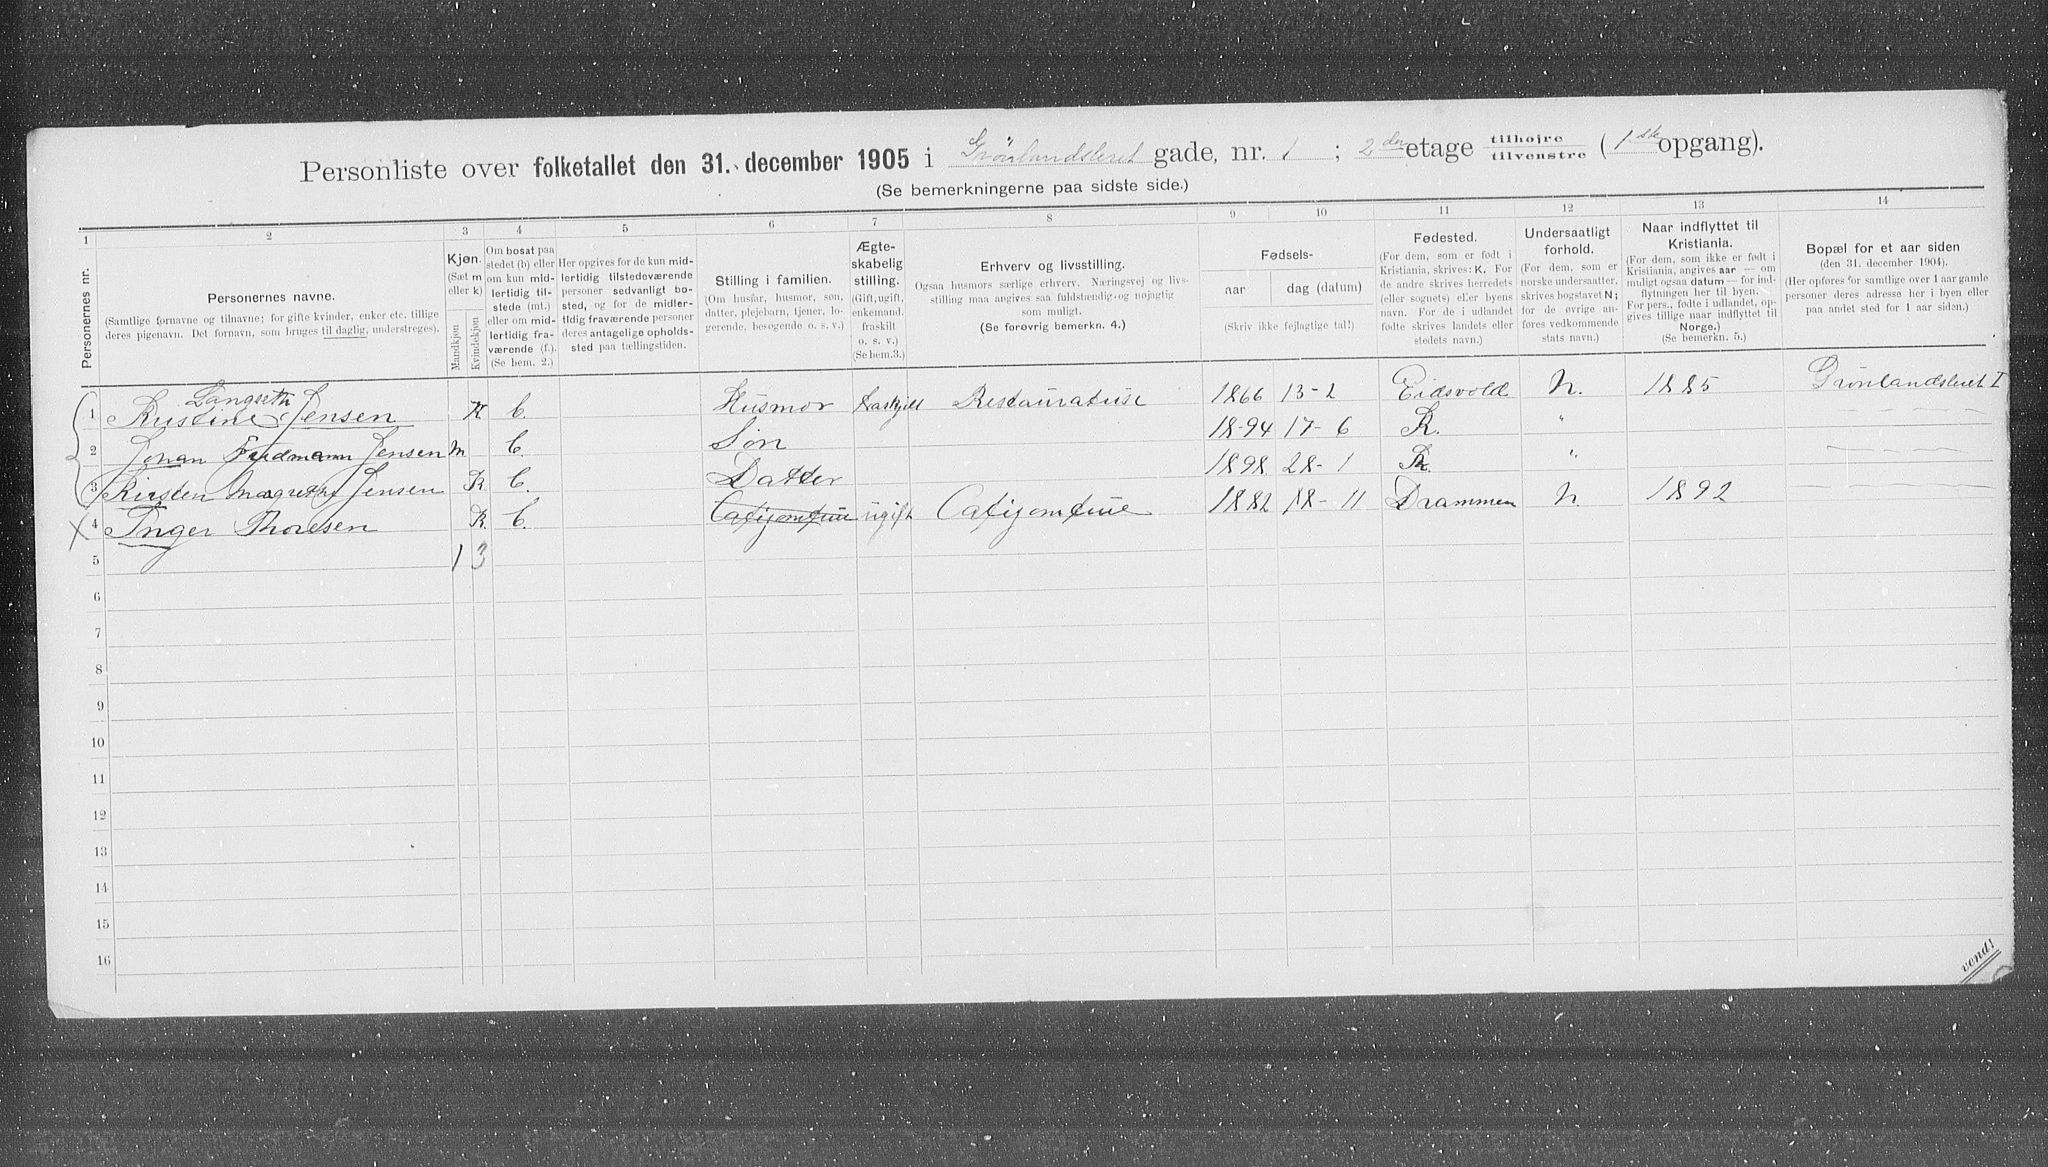 Personliste over folketallet den 31. december 1905 i Grønlandsleret gade, nr. 1 ; 2den etage tilhøjre / tilvenstre ( 1ste opgang).
(Se bemerkningerne paa sidste side.)
1 2 3 4 5 6 7 8 9 10 11 12 13 14
Personernes nr.
Personernes navne.
(Samtlige fornavne og tilnavne; for gifte kvinder, enker etc. tillige
deres pigenavn. Det fornavn, som bruges til daglig, understreges).
Kjøn.
(Sæt m
eller k)
Mandkjøn
Kvindekjøn
Om bosat paa
stedet (b) eller
om kun mid-
lertidig til-
stede (mt.)
eller om mid-
lertidig fra-
værende (f.).
(Se bem. 2.)
Her opgives for de kun mid-
lertidig tilstedeværende
personer sedvanligt bo-
sted, og for de midler-
tidig fraværende personer
deres antagelige opholds-
sted paa tællingstiden.
Stilling i familien.
(Om husfar, husmor, søn,
datter, plejebarn, tjener, lo-
gerende, besøgende o. s. v.)
Ægte-
skabelig
stilling.
(Gift, ugift,
enkemand.
fraskilt
o. s. v.)
(Se bem.3.)
Erhverv og livsstilling.
Ogsaa husmors særlige erhverv. Næringsvej og livs-
stilling maa angives saa fuldstændig og nøjagtig
som muligt.
(Se forøvrig bemerkn. 4.)
Fødsels-
aar dag (datum)
(Skriv ikke fejlagtige tal!)
Fødested.
(For dem, som er født i
Kristiania, skrives: K. For
de andre skrives herredets
(eller sognets) eller byens
navn. For de i udlandet
fødte skrives landets eller
stedets navn.)
Undersaatligt
forhold.
(For dem, som er
norske undersaatter,
skrives bogstavet N;
for de øvrige an-
føres vedkommende
stats navn.)
Naar indflyttet til
Kristiania.
(For dem, som ikke er født i
Kristiania, angives aar — om
muligt ogsaa datum — for ind-
flytningen her til byen.
For pers., fødte i udlandet, op-
gives tillige naar indflyttet til
Norge.)
(Se bemerkn. 5.)
Bopæl for et aar siden
(den 31. december 1904).
(Her opføres for samtlige over 1 aar gamle
personer deres adresse her i byen eller
paa andet sted for 1 aar siden.)
1 Kristine Jensen K b. Husmor fraskilt 1866 13-2 Eidsvold N. 1885 Grønlandsleret 1
2 Johan Jensen m b. Søn 1894 17-6 K. "
3 Kirsten Magrethe Jensen K b. Datter 1898 28-1 K. "
X 4 Inger Thoresen K. b. ugift 1882 18-11 Drammen N. 1892
5 1 3
6
7
8
9
10
11
12
13
14
15
16
vend!